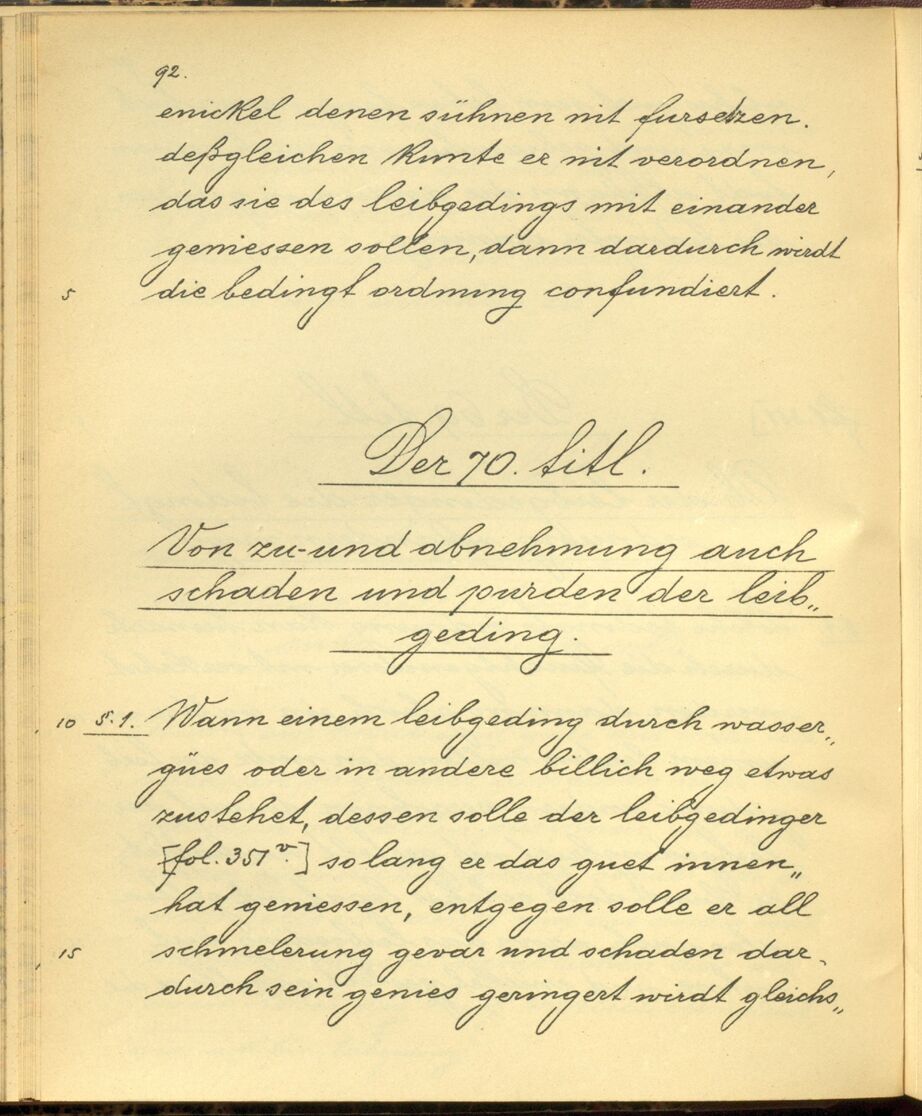 92.
enickel denen sühnen nit fursetzen.
deßgleichen kunte er nit verordnen,
das sie des leibgedings mit einander
geniessen sollen, dann dardurch wirdt
5 die bedingt ordnung confundiert.
Der 70. titl.
Von zu- und abnehmung auch
schaden und purden der leib„
geding.
10 §. 1. Wann einem leibgeding durch wasser„
gües oder in andere billich weg etwas
zustehet, dessen solle der leibgedinger
[fol. 351 v.] so lang er das guet innen„
hat geniessen, entgegen solle er all
15 schmelerung gevar und schaden dar-
durch sein genies geringert wirdt gleichs„